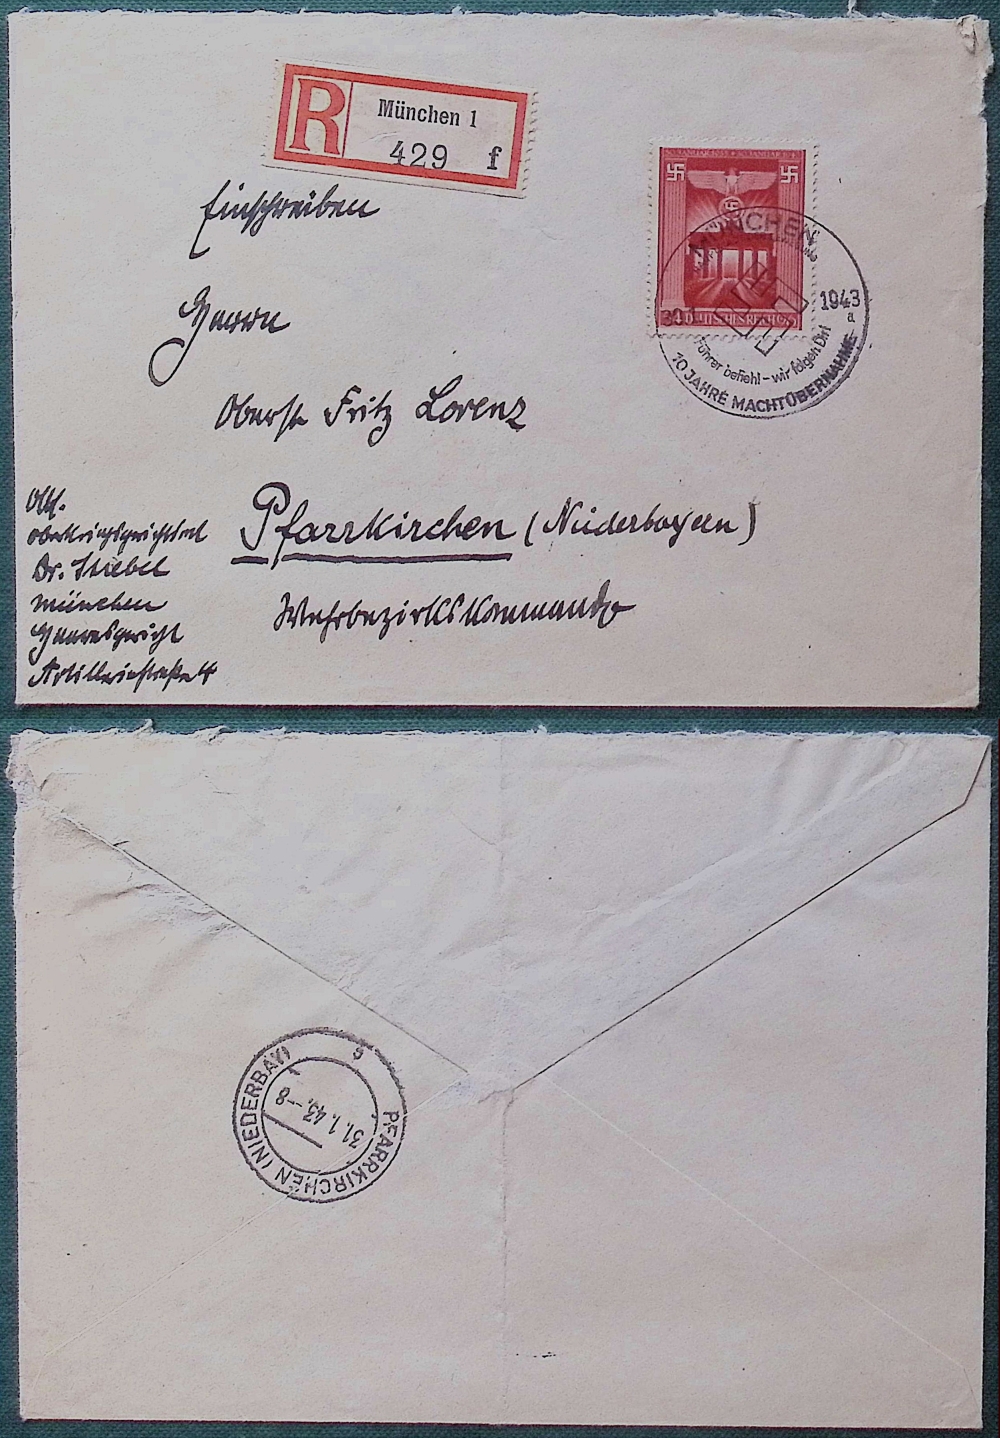 R
München 1
429 f
Einschreiben
Herrn
Oberst Fritz Lorenz
Pfarrkirchen (Niederbayern)
Wehrbezirkskommando
Abs.
Oberkriegsgerichtsrat
Dr. Stiebel
München
Heeresgericht
Artilleriestraße 4
DEUTSCHES REICH
MÜNCHEN
30.1. 1943
a
Führer befiehl - wir folgen Dir!
10 JAHRE MACHTÜBERNAHME
PFARRKIRCHEN (NIEDERBAY)
31.1.43.--8
g